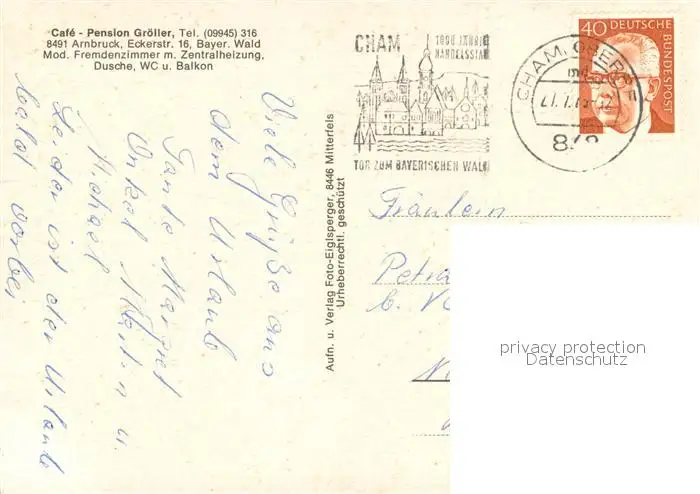 Café - Pension Gröller, Tel. (09945) 316
8491 Arnbruck, Eckerstr. 16, Bayer. Wald
Mod. Fremdenzimmer m. Zentralheizung,
Dusche, WC u. Balkon
CHAM
1000 JÄHRIG
HANDELSSTAD
TOR ZUM BAYERISCHEN WALD
CHAM, OBERPF
40 DEUTSCHE BUNDESPOST
Viele Grüße aus
dem Urlaub
Tante Margret
Onkel Martin u.
Michael
Leider ist der Urlaub
bald vorbei
Aufn. u. Verlag Foto-Eiglsperger, 8446 Mitterfels
Urheberrechtl. geschützt
Fräulein
Petra
privacy protection
Datenschutz